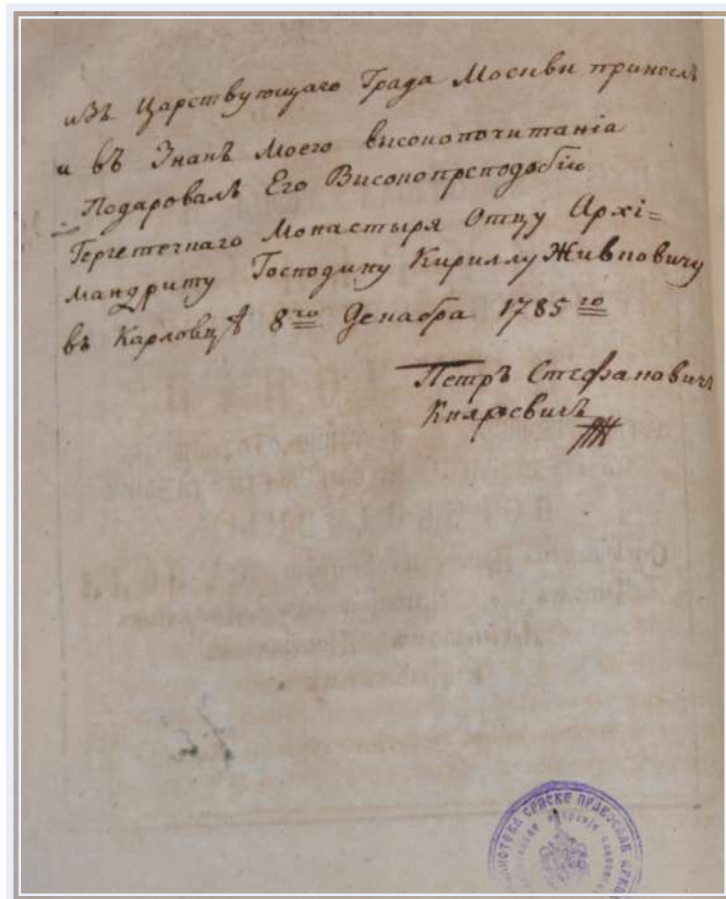 изъ Царствующаго Града Москви принеслъ
и въ Знакъ Моего високопочитанія
Подаровалъ Его Високопреподобію
Гергетечнаго Монастыря Отцу Архі=
мандриту Господину Кириллу Живковичу
въ Карловцѣ 8го Декабра 1785го
Петръ Стефановичъ
БИБЛИОТЕКА СРПСКЕ ПРАВОСЛАВ